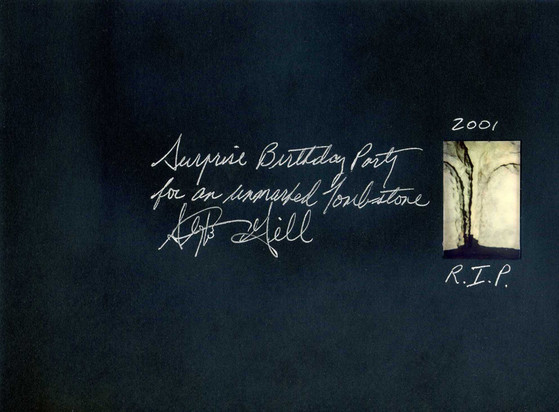 2001
Surprise Birthday Party
for an unmarked Tombstone
Gill
R.I.P.